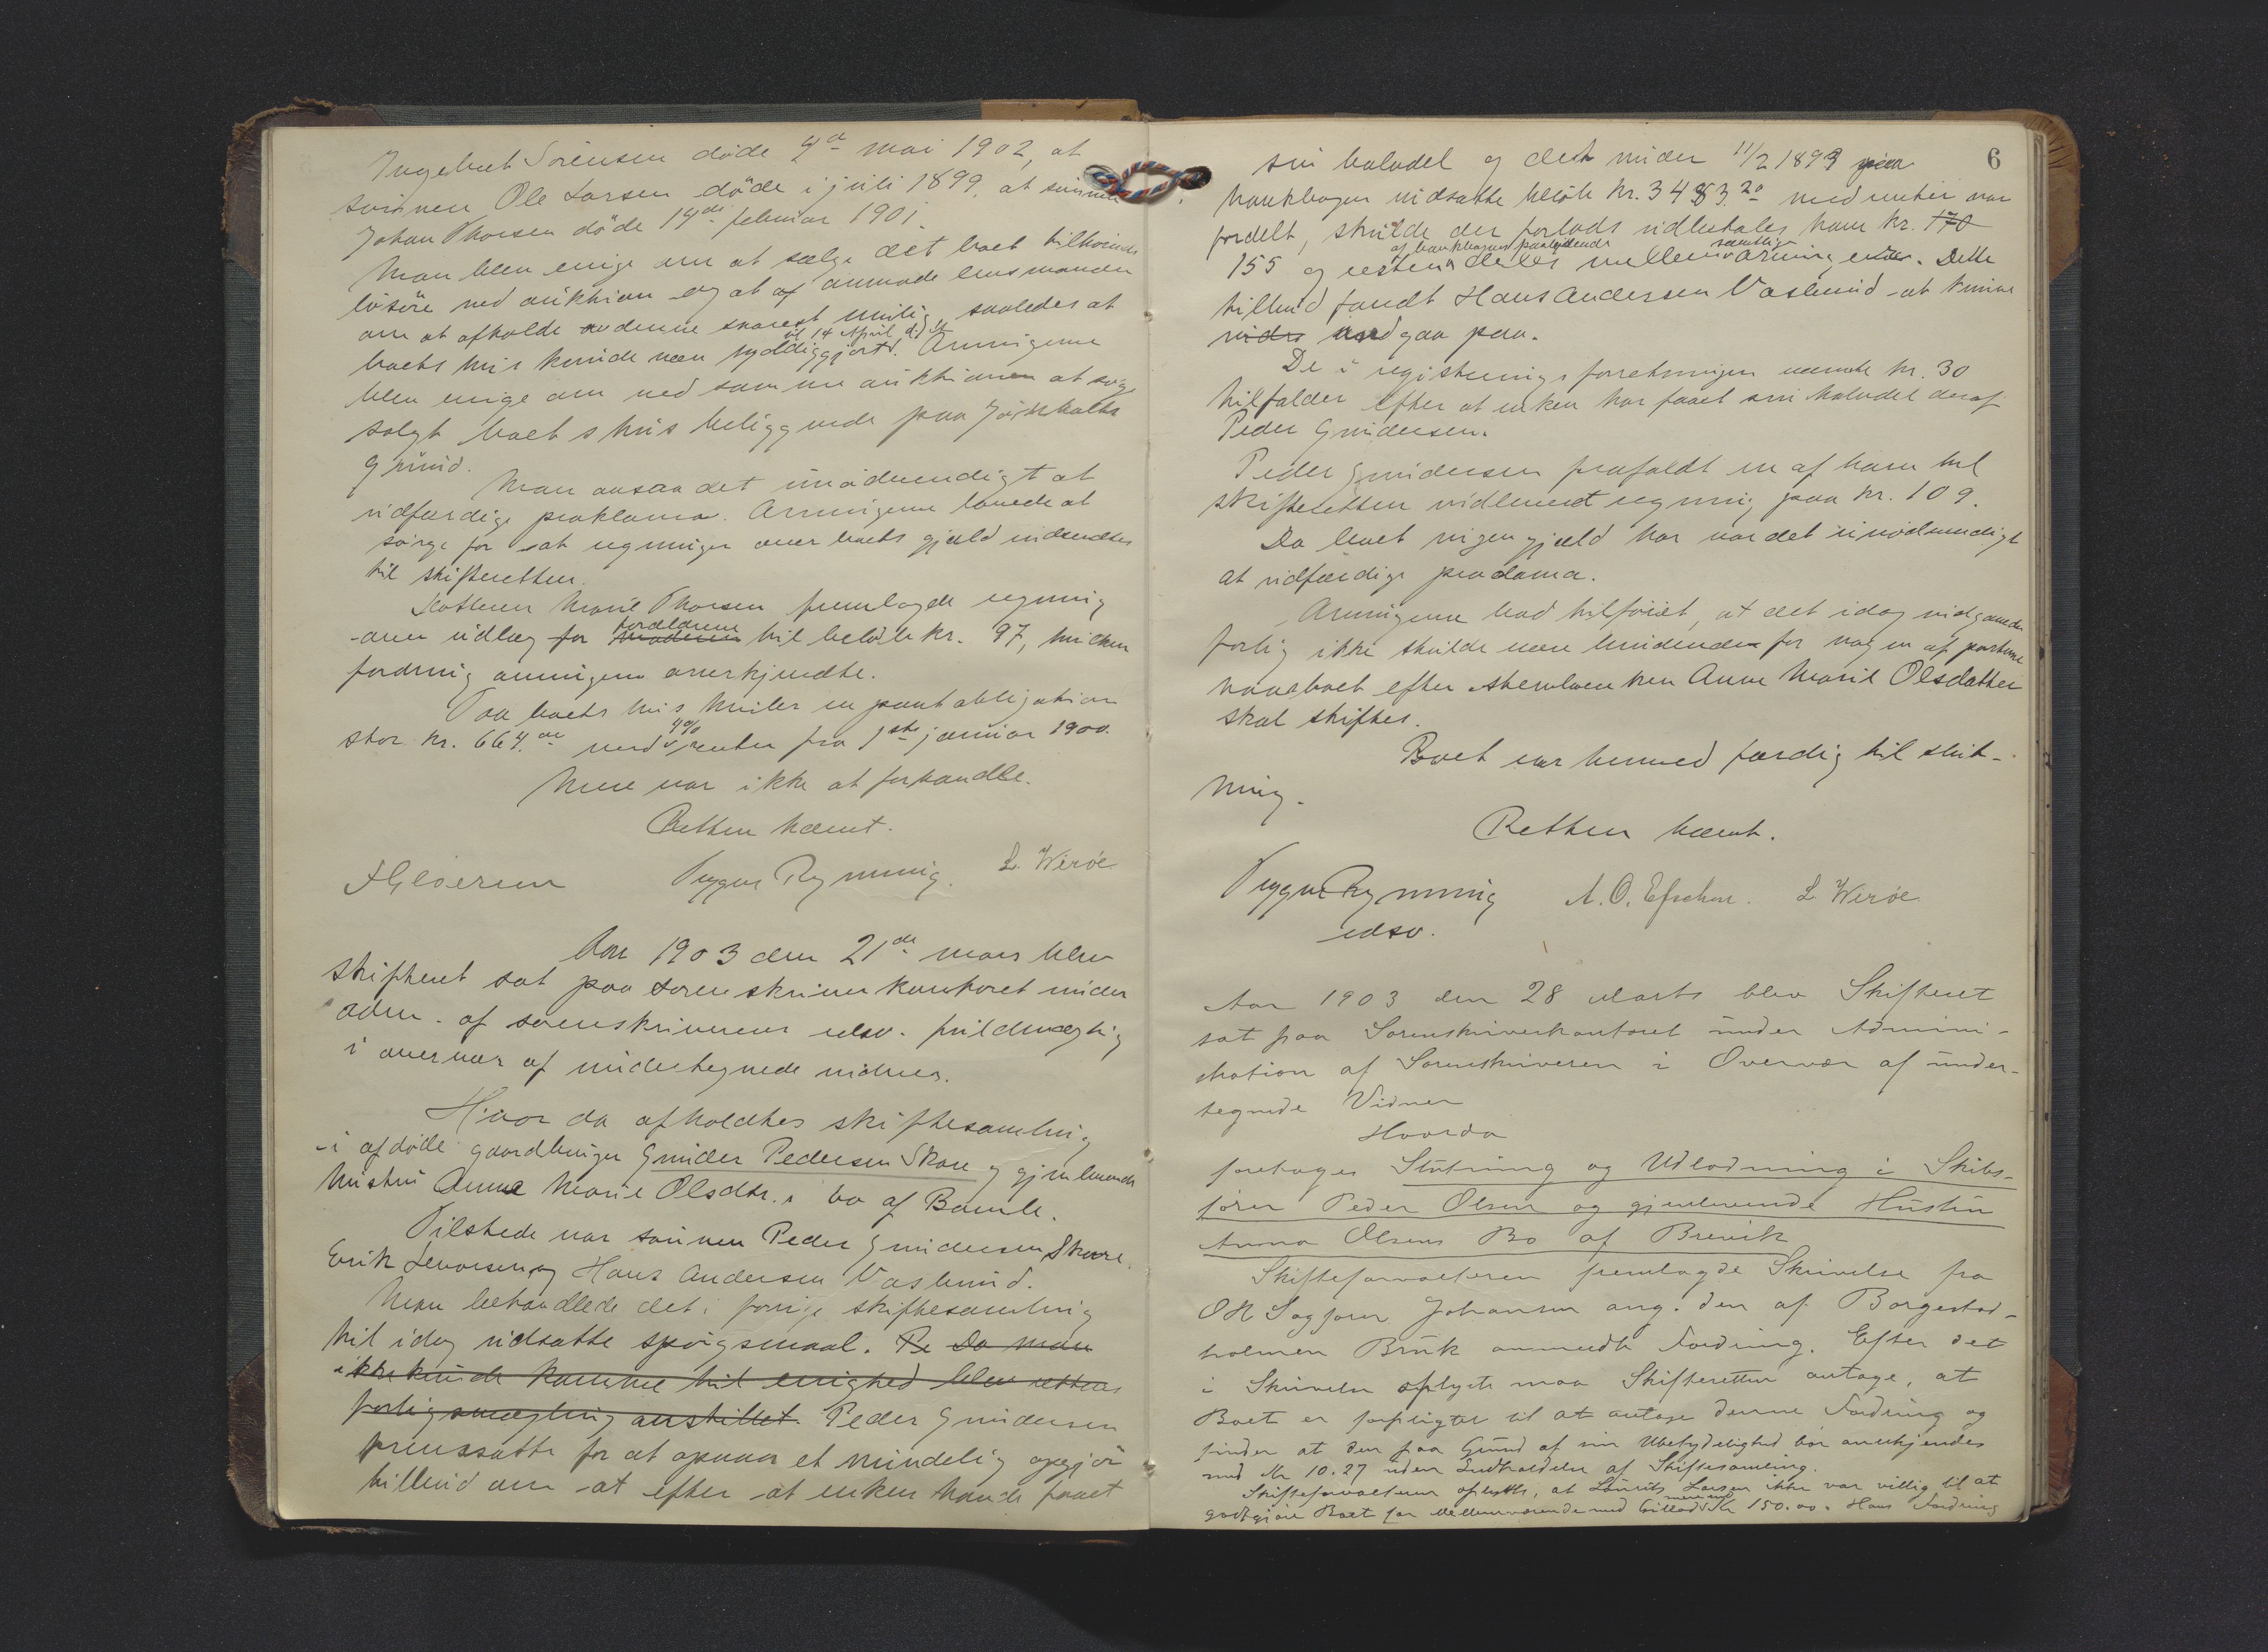 Ingebret Sörensen döde 7de mai 1902, at
sønnen Ole Larsen döde i juli 1899, at sönnen
Johan Thorsen döde 14de februar 1901.
Man blev enige om at sælge det boet tilhörende
lösöre ved auktion og at af anmode lensmanden
om at afholde denne snarest mulig, saaledes at
til 14 April d. A.
boets hus kunde være ryddiggjort. Arvingerne
blev enige om ved samme auktion at söge
solgt boets hus beliggende paa
grund.
Man ansaa det unödvendigt at
udfærdige proklama. Arvingerne lovede at
sörge for at regninger over boets gjæld indsendtes
til skifteretten.
Datteren Marie Thorsen fremlagde regning
forældrene
over udlæg for moderen til beløb kr. 97, hvilken
fordring arvingerne anerkjendte.
Paa boets hus hviler en pantobligation
4%
stor kr. 664.00 med renter fra 1ste januar 1900.
Mere var ikke at forhandle.
Retten hævet.
Trygve Rynning. L. Wirøe
Aar 1903 den 21de mars blev
skifteret sat paa sorenskriverkontoret under
adm. af sorenskriverens edsv. fuldmægtig
i overvær af undertegnede vidner.
Hvor da afholdtes skiftesamling
i afdöde gaardbruger Gunder Pedersen Skare og gjenlevende
hustru Anne Marie Olsdtr.s bo af Bamle.
Tilstede var sönnen Peder Gundersen Skare,
Erik Levorsen og Hans Andersen Vaslund.
Man behandlede det i forrige skiftesamling
til idag udsatte spörgsmaal. Pe Da man
ikke kunde komme til enighed blev rettens
forligsmægling anstillet. Peder Gundersen
fremsatte for at opnaa et mindelig opgjör
tilbud om at efter at enken havde faaet
6
sin boslodel og det under 11/2 1899 paa
bankbogen indsatte belöb kr. 3483.20 med renter var
fordelt, skulde der forlods udbetales ham kr. 170
af bankbogens paalydende samtlige
155 og resten deles mellem arvingerne. Dette
tilbud fandt Hans Andersen Vaslund at kunne
indgaa paa.
De i registreringsforretningen nævnte kr. 30
tilfalder efter at enken har faaet sin halvdel deraf
Peder Gundersen.
Peder Gundersen frafaldt en af ham til
skifteretten indleveret regning paa kr. 109.
Da boet ingen gjæld har var det unödvendigt
at udfærdige proclama.
Arvingerne bad tilföiet, at det idag indgaaede
forlig ikke skulde være bindende for nogen af parterne
naar boet efter enken Anne Marie Olsdatter
skal skiftes.
Boet var hermed færdig til slut-
ning.
Retten hævet.
Trygve Rynning A. O. L Wirøe
edsv.
Aar 1903 den 28 Marts blev Skifteret
sat paa Sorenskriverkontoret under Admini-
stration af Sorenskriveren i Overvær af under-
tegnede Vidner
Hvorda
foretoges Slutning og Udlodning i Skibs-
fører Peder Olsen og gjenlevende Hustru
Anna Olsens Bo af Brevik
Skifteforvalteren fremlagde Skrivelse fra
OR Sagfører Johansen ang. den af Borgestad-
holmen Bruk anmeldte Fordring. Efter det
i Skrivelse oplyste maa Skifteretten antage, at
Boet er forpligtet til at antage denne Fordring og
finder at den paa Grund af sin Ubetydelighed bör anerkjendes
med Kr 10.27 uden Indkaldelse af Skiftesamling.
Skifteforvalteren oplyste, at Laurits Larsen ikke var villig til at
godtgjøre Boet for Mellemværende med Kr 150.00. Hans Fordring